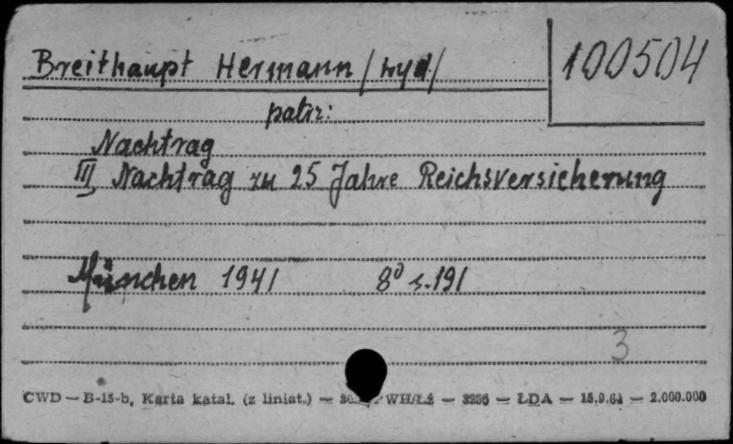 Breithaupt Hermann /wyd/
100504
patrz:
Nachtrag
III Nachtrag zu 25 Jahre Reichsversicherung
München 1941 8° s.191
3
CWD — B-15-b, Karta katal. (z liniat.) — WH/Ł2 — 3256 — ŁDA — 15.9.64 — 2.000.000